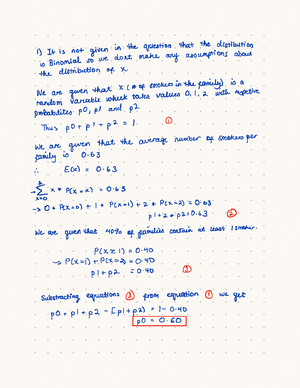 1) It is not given in the question that the distribution
is Binomial so we dont make any assumptions about
the distribution of X.
We are given that X (# of smokers in the family) is a
random variable which takes values 0, 1, 2 with respective
probabilities p0, p1 and p2.
Thus p0 + p1 + p2 = 1. ①
We are given that the average number of smokers per
family is 0.63
∴ E(x) = 0.63
→ 2 Σ x=0 x * P(X=x) = 0.63
→ 0 * P(X=0) + 1 * P(X=1) + 2 * P(X=2) = 0.63
p1 + 2 * p2 = 0.63 ②
We are given that 40% of families contain at least 1 smoker.
P(X ≥ 1) = 0.40
→ P(X=1) + P(X=2) = 0.40
p1 + p2 = 0.40 ③
Substracting equations ③ from equation ① we get
p0 + p1 + p2 - (p1 + p2) = 1 - 0.40
p0 = 0.60